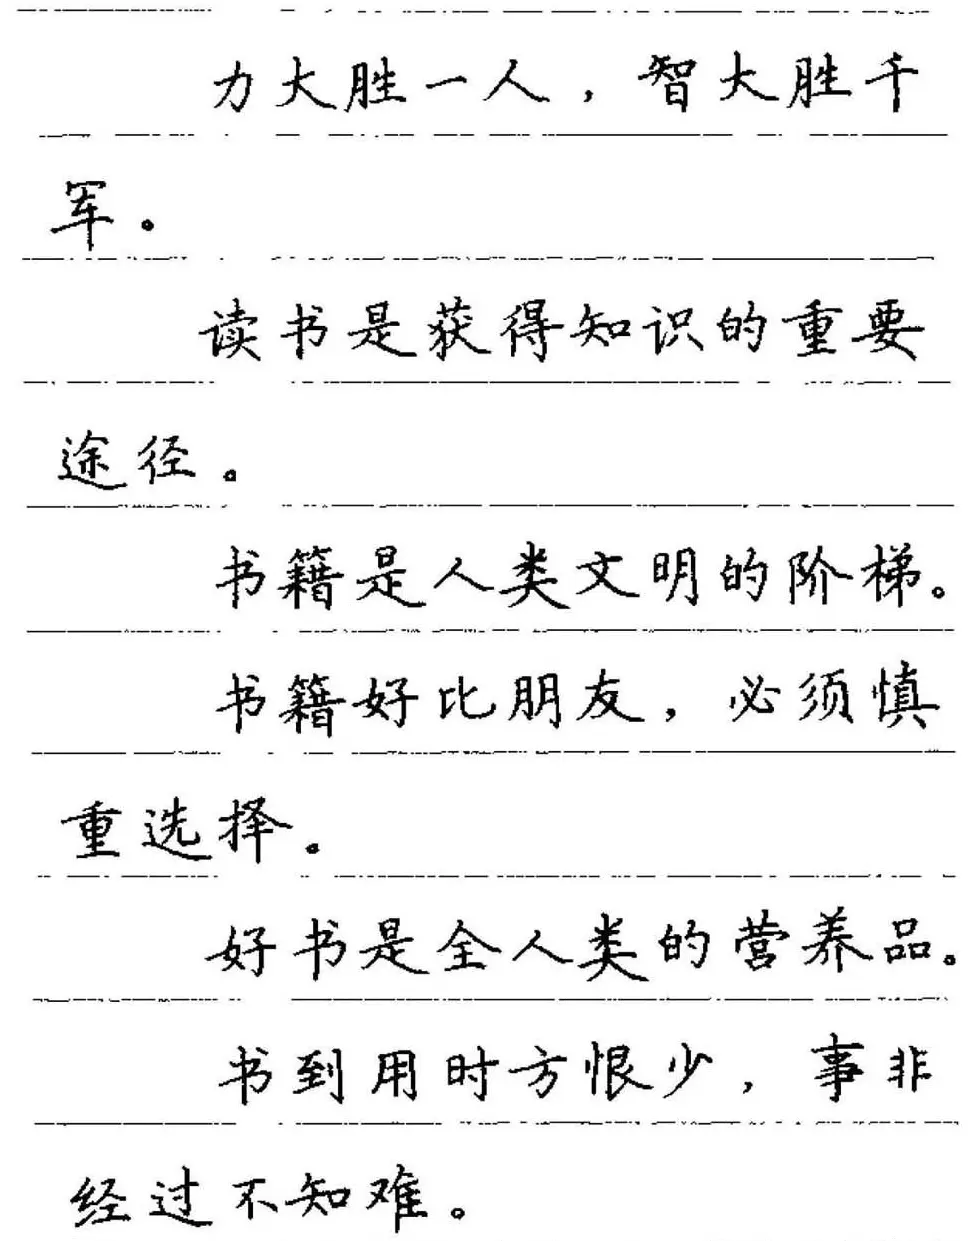 力大胜一人，智大胜千
军。
读书是获得知识的重要
途径。
书籍是人类文明的阶梯。
书籍好比朋友，必须慎
重选择。
好书是全人类的营养品。
书到用时方恨少，事非
经过不知难。